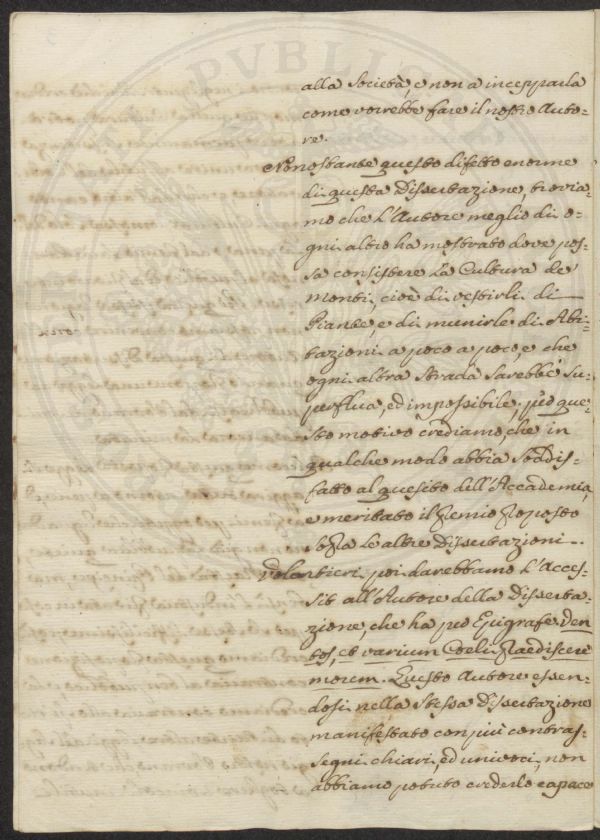 alla Società, e non a inceppasla
come vorrebbe fare il nostro Auto-
re.
Nonostante questo difetto enorme
di questa Dissertazione, trovia-
mo che l'Autore meglio di o-
gni altro ha mostrato dove pos-
sa consistere la Cultura de
monti, cioè di vestirli di
Piante, e di munirle di Abi-
tazioni a poco a poco, e che
ogni altra strada sarebbe su-
perflua, ed impossibile; p que-
sto motivo crediamo, che in
qualche modo abbia soddis-
fatto al quesito dell'Accademia,
e meritato il Premio proposto
sopra le altre Dissertazioni.
Volontieri poi darebbamo l'Acces-
sit all'Autore della Disserta-
zione, che ha per Epigrafe Ven
tos, et varium Coeli praediscere
morem. Questo Autore essen-
dosi nella stessa Dissertazione
manifestato con più contras-
segni chiari, ed univoci, non
abbiamo potuto crederlo capace